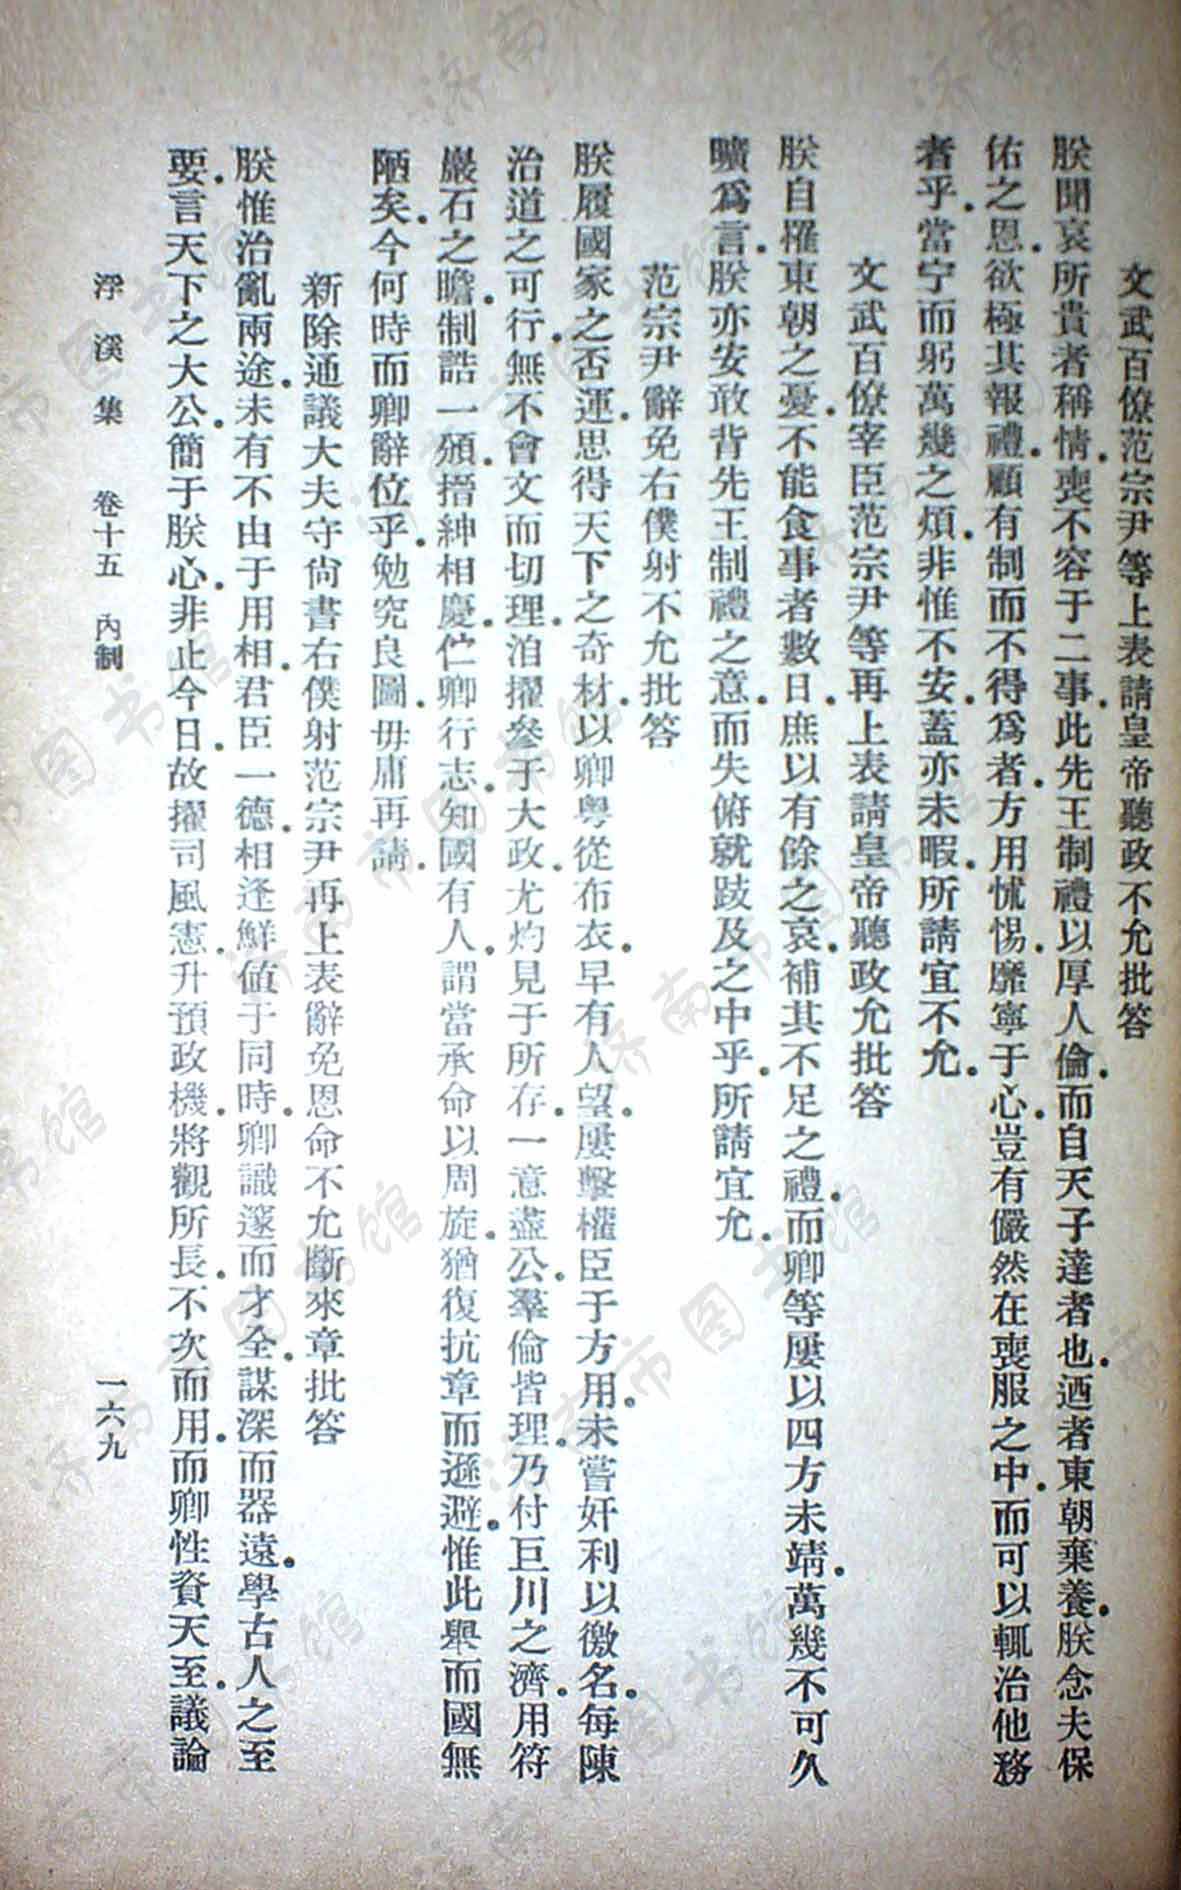 文武百僚范宗尹等上表請皇帝聽政不允批答
朕聞哀所貴者稱情．喪不容于二事．此先王制禮以厚人倫．而自天子達者也．迺者東朝棄養．朕念夫保
佑之恩．欲極其報禮．顧有制而不得爲者．方用怵惕．靡寧于心．豈有儼然在喪服之中．而可以輒治他務
者乎．當宁而躬萬幾之煩．非惟不安．蓋亦未暇．所請宜不允．
文武百僚宰臣范宗尹等再上表請皇帝聽政允批答
朕自罹東朝之憂．不能食事者數日．庶以有餘之哀．補其不足之禮．而卿等屢以四方未靖．萬幾不可久
曠爲言．朕亦安敢背先王制禮之意．而失俯就跂及之中乎．所請宜允．
范宗尹辭免右僕射不允批答
朕履國家之否運．思得天下之奇材．以卿粵從布衣．早有人望．屢擊權臣于方用．未嘗奸利以徼名．每陳
治道之可行．無不會文而切理．洎擢參于大政．尤灼見于所存．一意盡公．羣倫皆理．乃付巨川之濟．用符
巖石之瞻．制誥一頒．搢紳相慶．伫卿行志．知國有人．謂當承命以周旋．猶復抗章而遜避．惟此舉而國無
陋矣．今何時而卿辭位乎．勉究良圖．毋庸再請．
新除通議大夫守尙書右僕射范宗尹再上表辭免恩命不允斷來章批答
朕惟治亂兩途．未有不由于用相．君臣一德．相逢鮮値于同時．卿識邃而才全．謀深而器遠．學古人之至
要．言天下之大公．簡于朕心．非止今日．故擢司風憲．升預政機．將觀所長．不次而用．而卿性資天至．議論
浮溪集 卷十五 內制 一六九
济南市图书馆